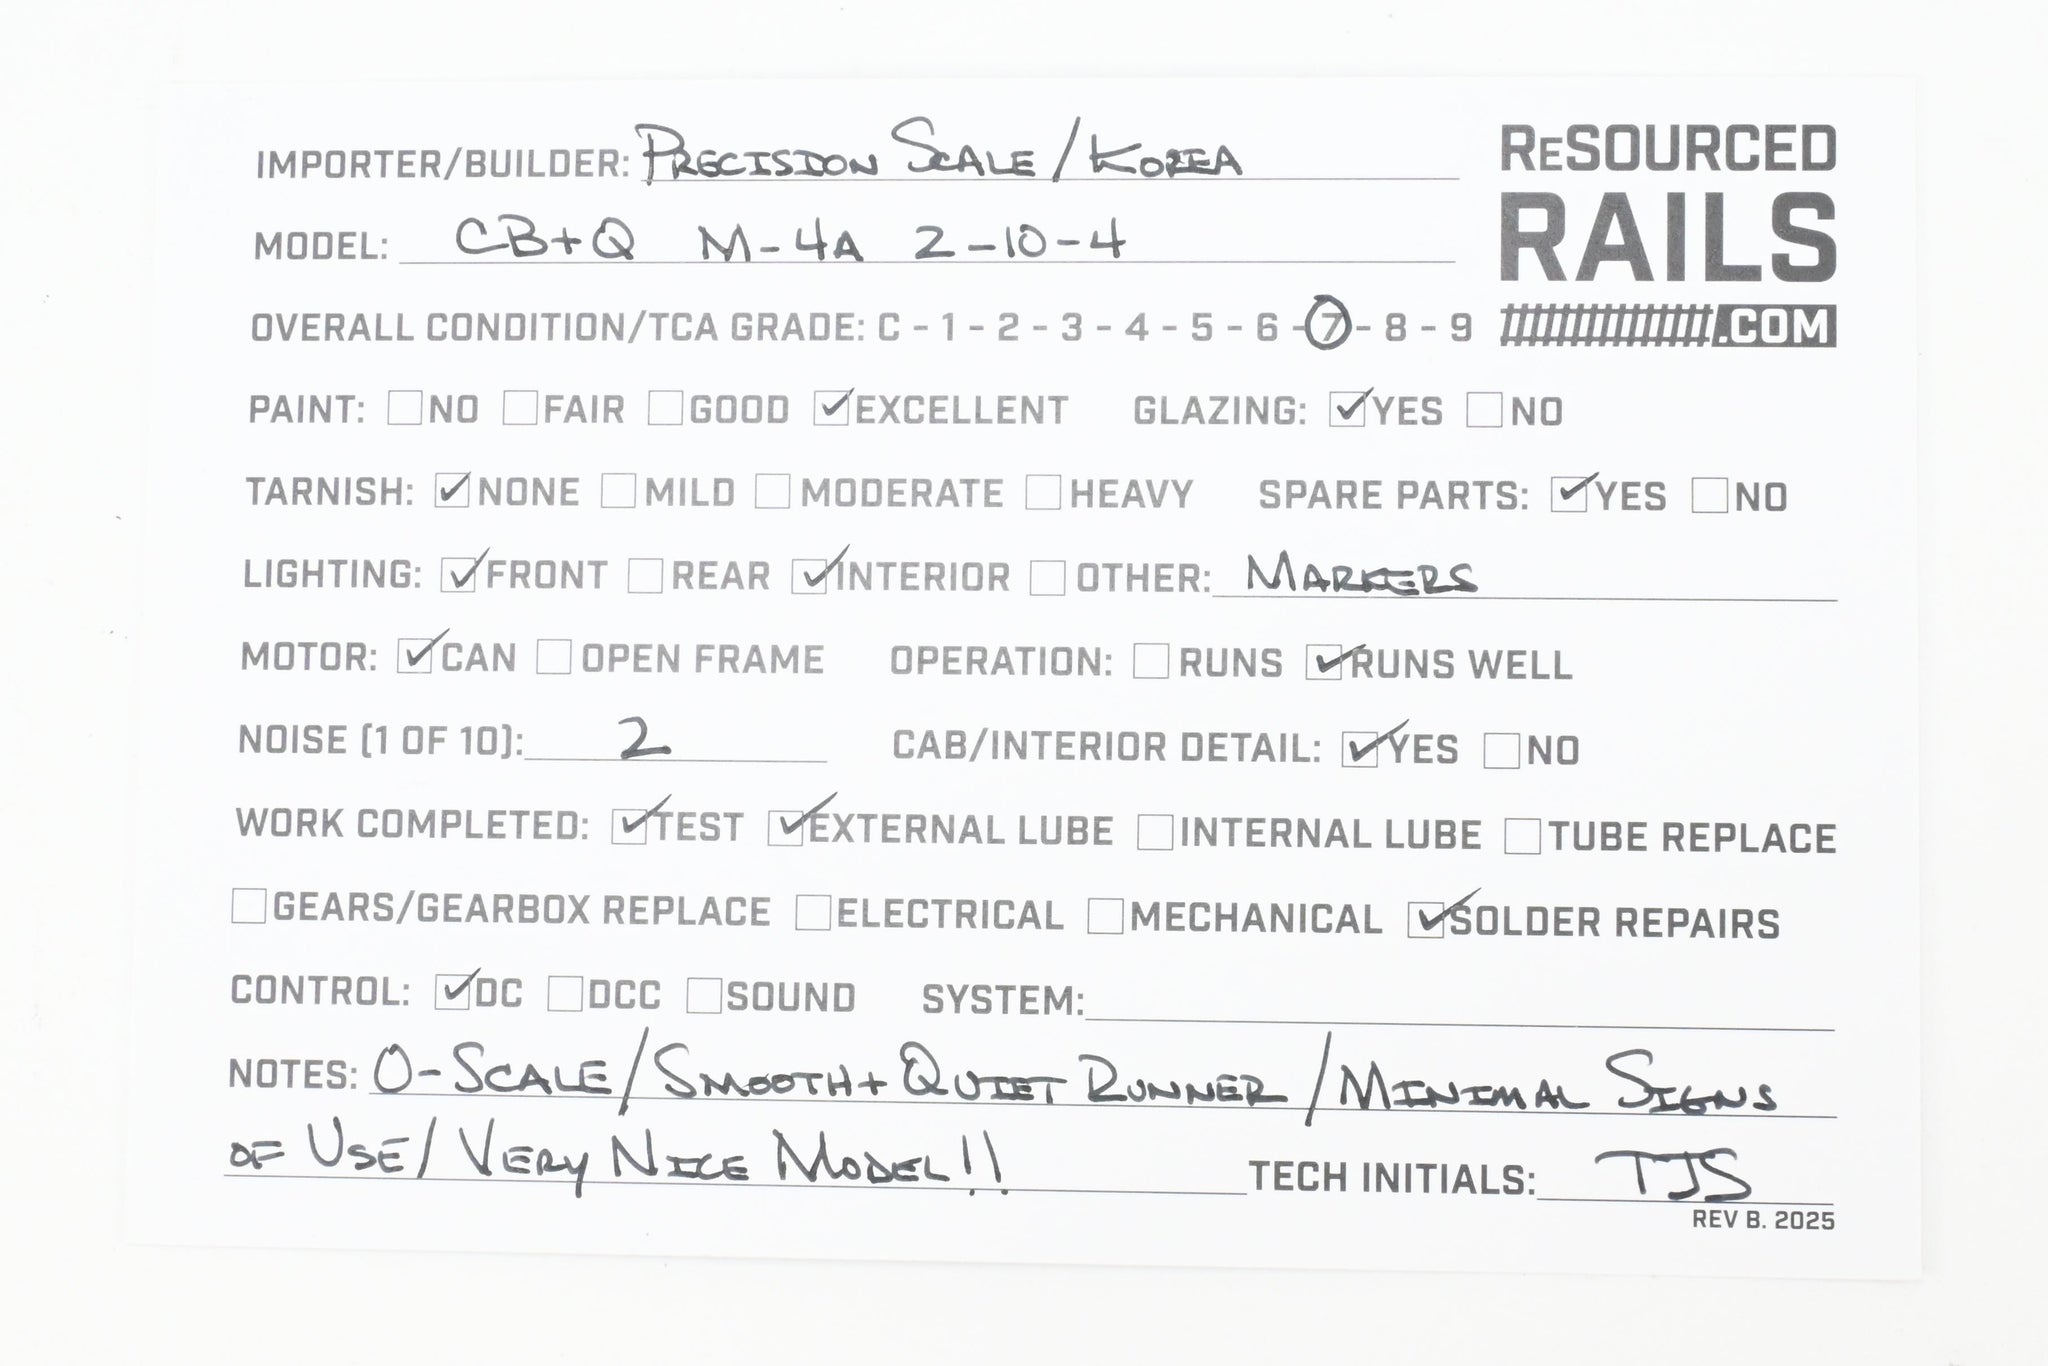 IMPORTER/BUILDER: PRECISION SCALE / KOREA
RESOURCED
RAILS
.COM
MODEL: CB+Q M-4A 2-10-4
OVERALL CONDITION/TCA GRADE: C - 1 - 2 - 3 - 4 - 5 - 6 - 7 - 8 - 9
PAINT: ☐NO ☐FAIR ☐GOOD ☑EXCELLENT GLAZING: ☑YES ☐NO
TARNISH: ☑NONE ☐MILD ☐MODERATE ☐HEAVY SPARE PARTS: ☑YES ☐NO
LIGHTING: ☑FRONT ☐REAR ☑INTERIOR ☐OTHER: MARKERS
MOTOR: ☑CAN ☐OPEN FRAME OPERATION: ☐RUNS ☑RUNS WELL
NOISE (1 OF 10): 2 CAB/INTERIOR DETAIL: ☑YES ☐NO
WORK COMPLETED: ☑TEST ☑EXTERNAL LUBE ☐INTERNAL LUBE ☐TUBE REPLACE
☐GEARS/GEARBOX REPLACE ☐ELECTRICAL ☐MECHANICAL ☑SOLDER REPAIRS
CONTROL: ☑DC ☐DCC ☐SOUND SYSTEM:
NOTES: O-SCALE / SMOOTH + QUIET RUNNER / MINIMAL SIGNS
OF USE / VERY NICE MODEL!! TECH INITIALS: TJS
REV B. 2025